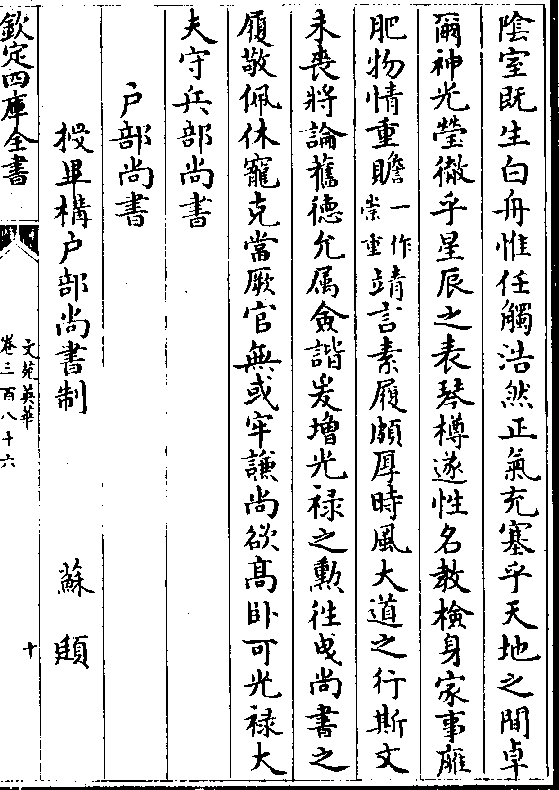 陰室既生白舟惟任觸浩然正氣充塞乎天地之間卓
爾神光瑩徹乎星辰之表琴樽遂性名教檢身家事雁
肥物情重瞻一作崇重靖言素履頗厚時風大道之行斯文
未喪將論舊德允属僉諧爰增光禄之勲徃曳尚書之
履敬佩休寵克當厥官無或牢謙尚欲髙卧可光禄大
夫守兵部尚書
户部尚書
授畢構户部尚書制 蘇頲
欽定四庫全書
文苑英華
卷三百八十六
十